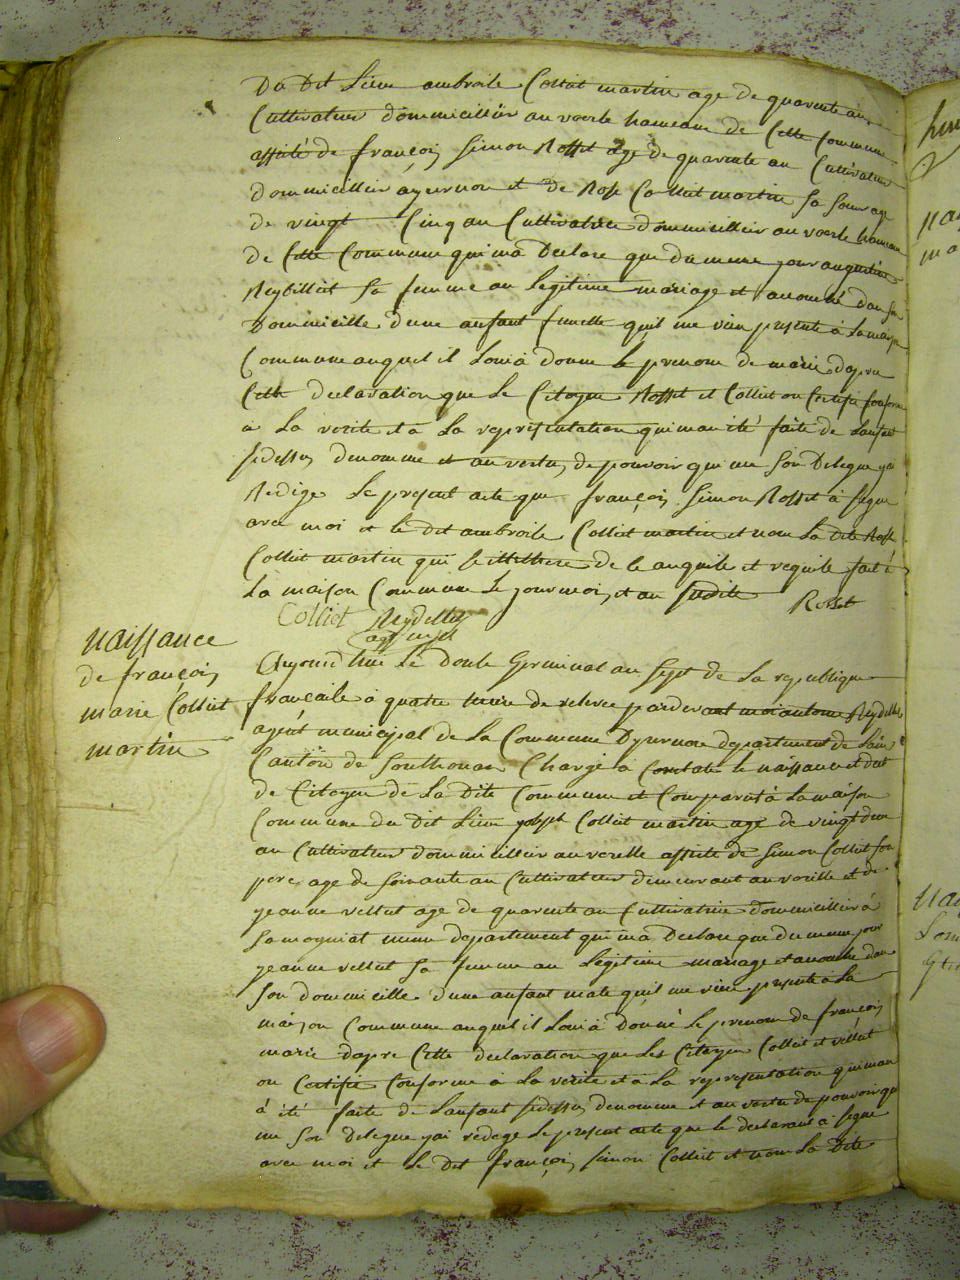 Du Dit Lieu ambroile Colliet martin age de quarente an
Cultivateur dommicillier au voerle hameau de Cette Commune
assisté de françois simon Rosset age de quarente an Cultivateur
dommicillier ayvernon et de Rose Colliet martin sa soeur age
de vingt Cinq an Cultivatrice dommicillier au voerle hameau
de Cette Commune qui ma Declare que du meme jour augustine
Neydilliet sa femme an legitime mariage et acouché dan son
Dommicille dune anfant femelle quil me vien presente à la maison
Commune auquel il Lonia donne le prenom de marie dapre
Cette declaration que le Citoyen Rosset et Colliet on Certifie Conforme
a La verite et a La representation qui ma été faite de Lanfant
sidessus denomme et an vertu de pouvoir qui me son Delegue jai
Redige Le present acte que françois Simon Rosset à signe
avec moi et le dit ambroile Colliet martin et non La dite Rose
Colliet martin qui de le anquile et requile fait à
La maison Commune Le jour mois et an sudite Rosset
Colliet Neydellet
agt mpl
naissance
de françois
marie Colliet
martin
Aujourd'huie Le Doule Germinal an sept de La republique
françaile à quatre heure de relevee pardevant moi antoine Neydellet
agent municipal de La Commune Dyvernon departement de Lain
Canton de Southonax Chargé à Constaté le naissance et deet
de Citoyen de La Dite Commune et Comparut à La maison
Commune du Dit Lieu joseph Colliet martin age de vingt deux
an Cultivateur dommicillier au voerlle assiste de Simon Colliet son
pere age de soixante an Cultivateur demeurant au voerlle et de
jeanne vellut age de quarente an Cultivatrice dommicillier à
Samogniat meme departement qui ma Declare que du meme jour
jeanne vellut sa femme an Legitime mariage et acouche dan
son dommicille dune anfant male quil me vien presente à La
maison Commune auquel il Lonia Donné Le prenom de françois
marie dapre Cette declaration que Les Citoyen Colliet et vellut
on Certifie Conforme à La verite et à La representation qui mau
à été faite de Lanfant sidessus denomme et an vertu de pouvoir qui
me son delegue jai redege Le present acte que le declarant à signe
avec moi et Le Dit françois simon Colliet et non La Dite